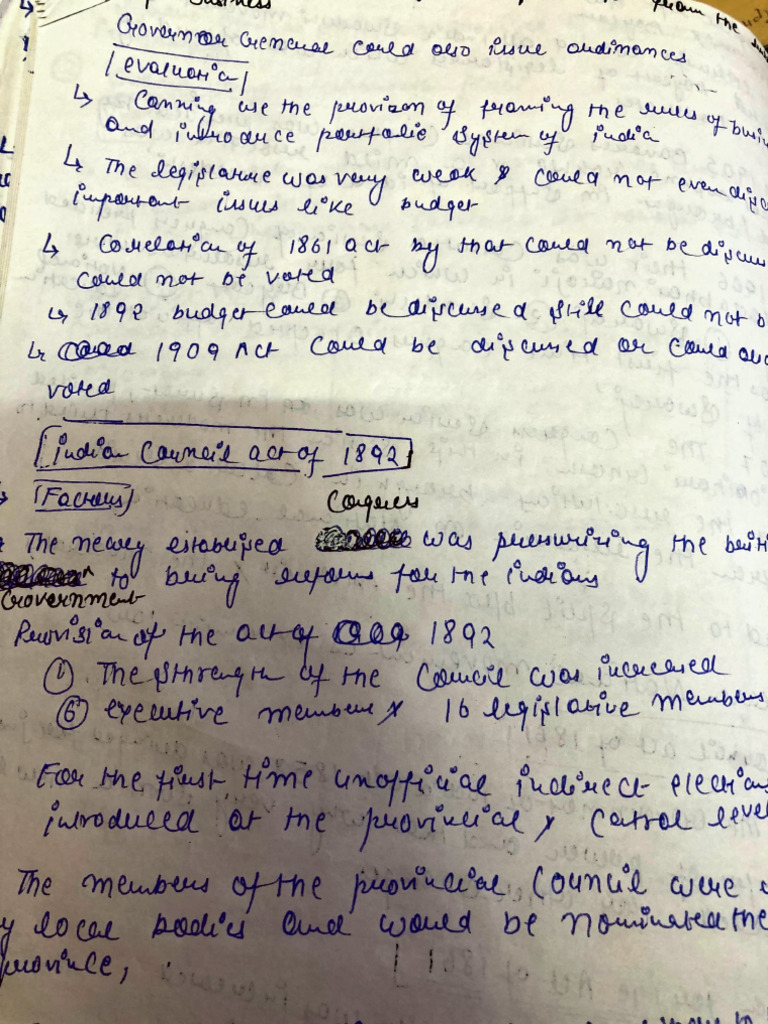 Business
from the
Governor General could also issue ordinances
Evaluation
↳ Canning use the provison of framing the rules of busin
and introduce portfolio system of india
↳ The legislature was very weak & could not even disc
important issues like budget
↳ Corelation of 1861 act by that could not be discuss
could not be voted
↳ 1892 budget could be discussed still could not b
↳ 1909 Act could be discussed or could also
voted
Indian Council act of 1892
(Factors) Congress
The newly establised was pressurising the briti
Government to bring reforms for the indians
Provision of the act of 1892
① The strength of the Council was increased
⑥ executive members & 16 legislative members
For the first time unofficial indirect elections
introduced at the provincial & Cental level
The members of the provincial Council were
y local bodies and would be nominated the
province,